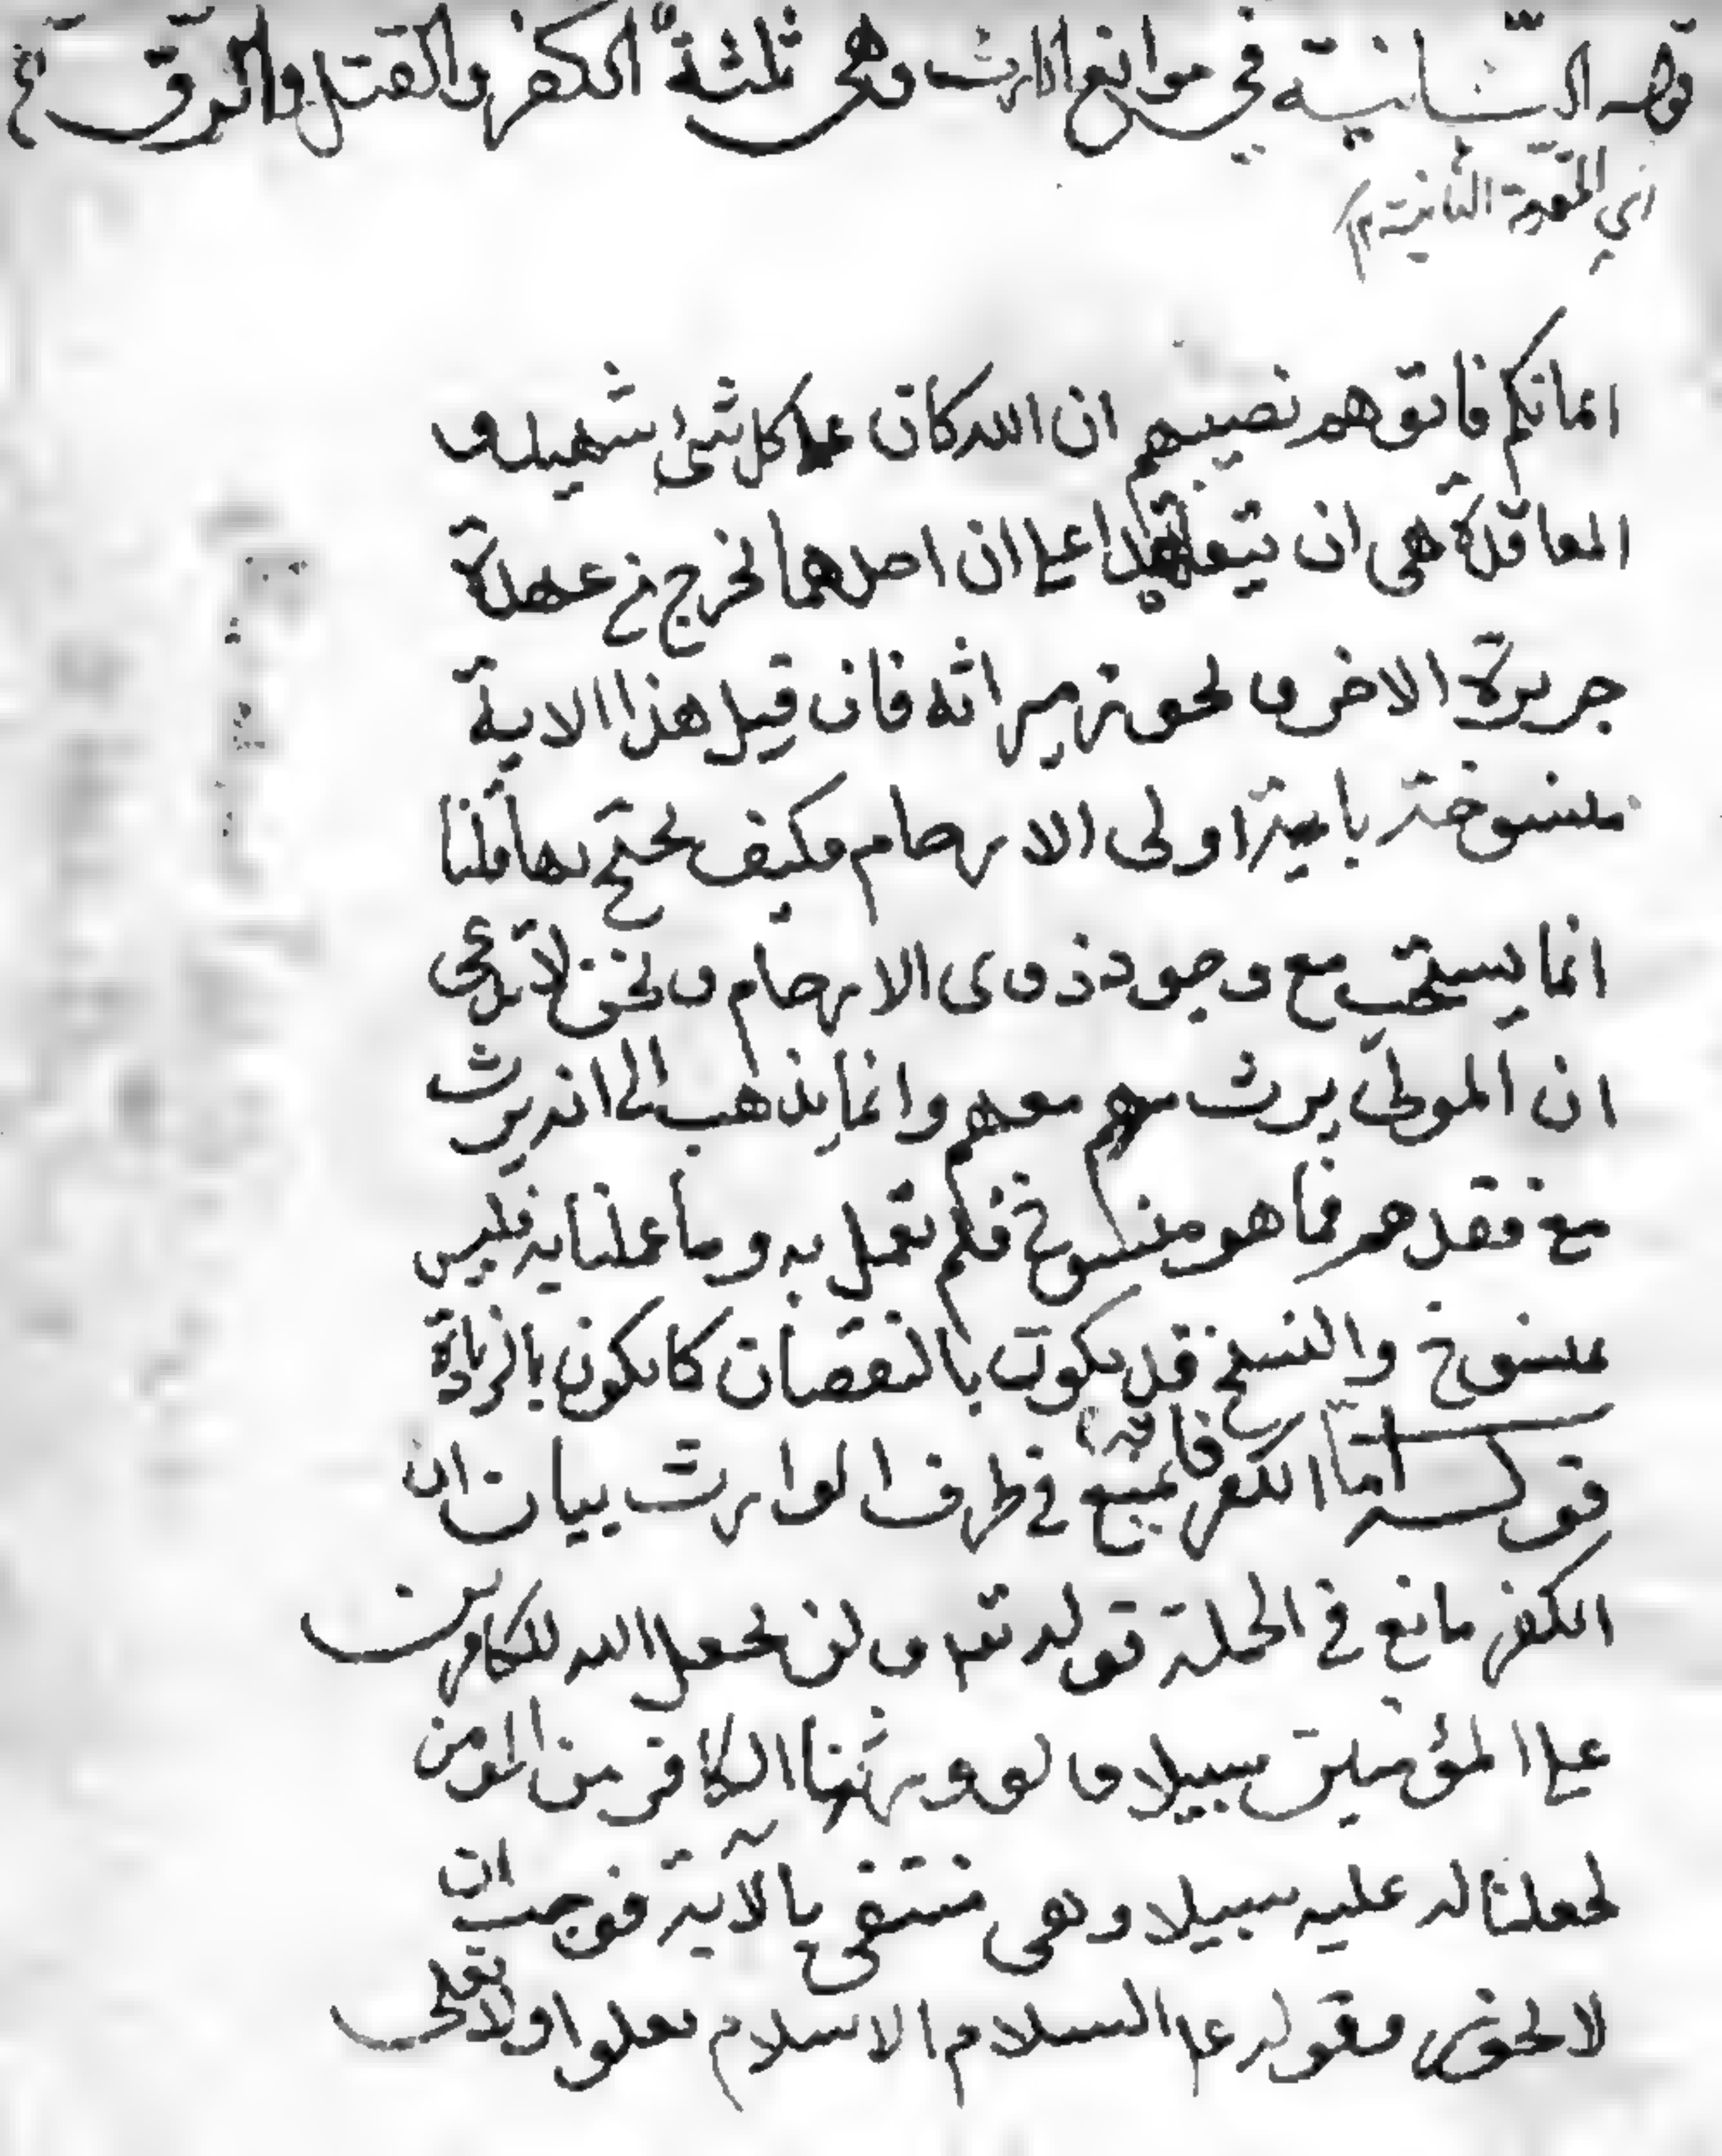 قوله الثانية في موانع الارث وهي ثلثة الكفر والقتل والرق
اي المقدمة الثانية
ايمانكم فاتوهم نصيبهم ان الله كان على كل شئ شهيدا و
المعاقدة هي ان يتعاهدا على ان احدهما يخرج من عهدة
جريرة الاخر و يحوز ميراثه فان قيل هذا الاية
منسوخة باية اولى الارحام فكيف يحتج بها قلنا
انما يستحب مع وجود ذوى الارحام و نحن لا ندعى
ان المولى يرث معهم وانما يذهب الى انه يرث
مع فقدهم فما هو منسوخ فلم نعمل به وما عملنا به فليس
بمنسوخ والنسخ قد يكون بالنقصان كما يكون بالزيادة
قوله اما الكفر فانه يمنع في طرف الوارث بيان ان
الكفر مانع في الجملة قوله تعا و لن يجعل الله للكافرين
على المؤمنين سبيلا و لو ورثنا الكافر من المؤمن
لجعلنا له عليه سبيلا و هى منتفى بالآية فوجب ان
لا يجوز و قوله ع السلام الاسلام يعلوا ولا يعلى